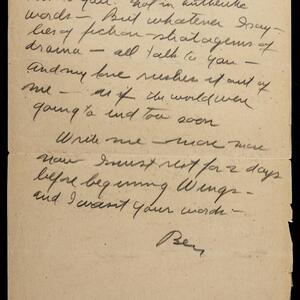 not in authentic
words — But whatever I say —
lies of fiction stratagems of
drama — all talk to you —
and my love rushes it out of
me — as if the world were
going to end too soon
Write me — more more
now I must rest for 2 days
before beginning Wings —
and I want your words —
Ben